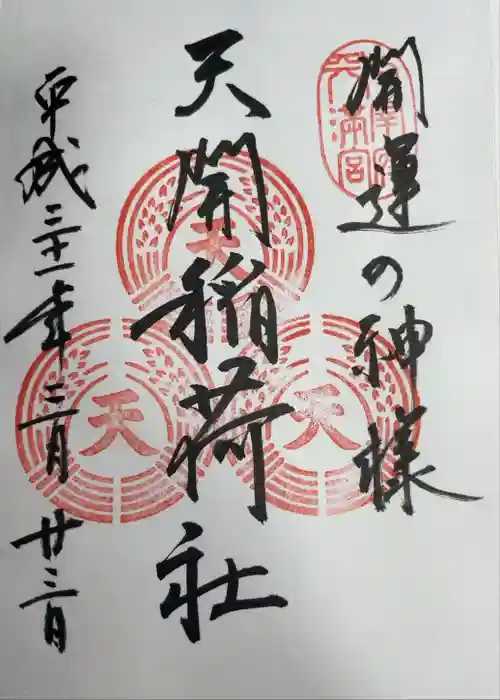 太宰府
天満宮
開運の神様
天開稲荷社
天
天
天
平成三十一年三月廿三日